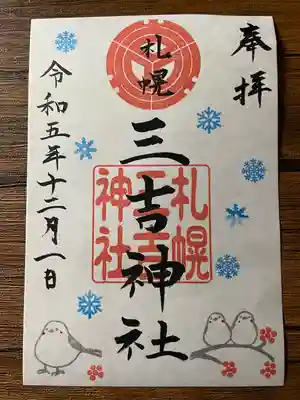 奉拝
札幌
三吉神社
札幌
三吉
神社
令和五年十二月一日